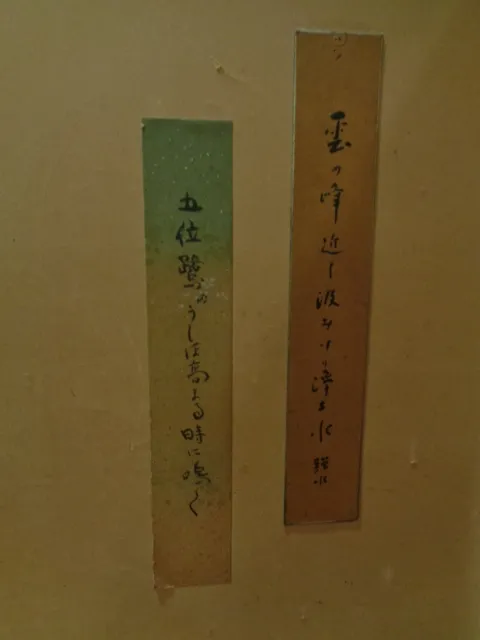 雲の峰近し汲みけり浄土水
五位鷺のうしほ高まる時に鳴く